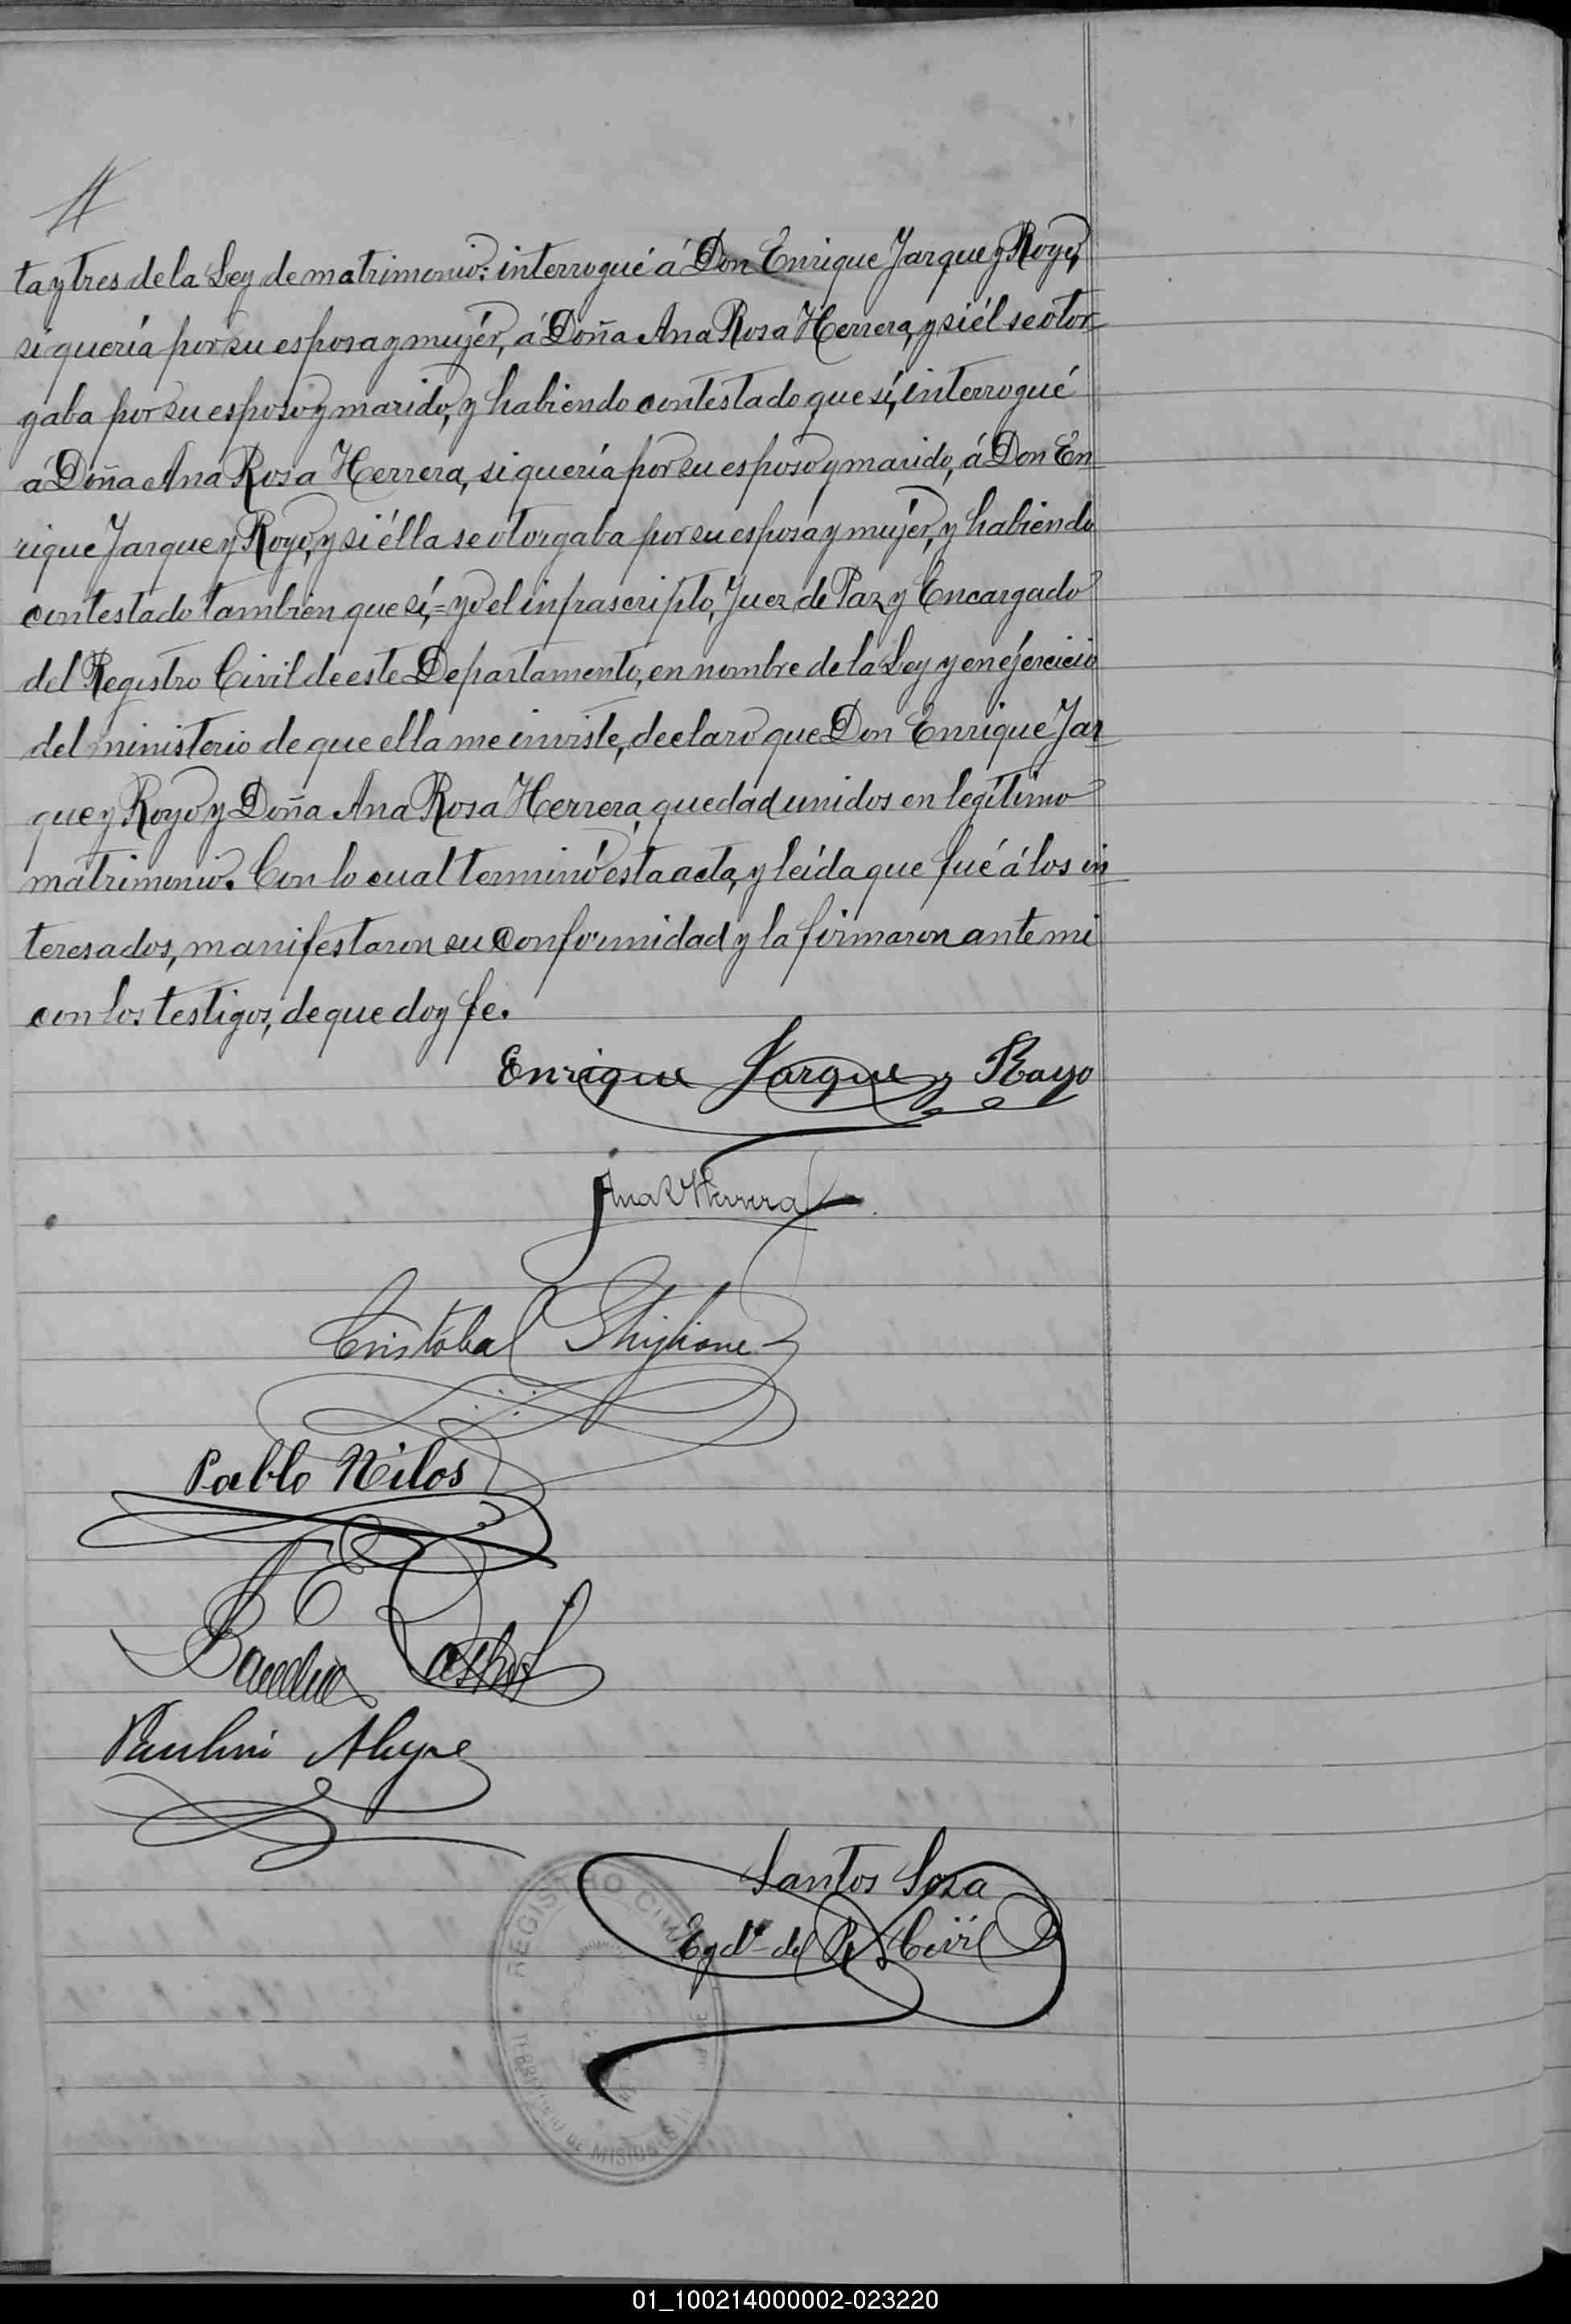 ta y tres de la Ley de matrimonio: interrogué á Don Enrique Jarque y Royo,
si quería por su esposa y mujér, á Doña Ana Rosa Herrera, y si él se otor-
gaba por su esposo y marido, y habiendo contestado que sí, interrogué
á Doña Ana Rosa Herrera, si quería por su esposo y marido, á Don En-
rique Jarque y Royo, y si élla se otorgaba por su esposa y mujér, y habiendo
contestado tambien que sí,= yo el infrascripto, Juez de Paz y Encargado
del Registro Civil de este Departamento, en nombre de la Ley y en ejercicio
del ministerio de que ella me inviste, declaro que Don Enrique Jar-
que y Royo y Doña Ana Rosa Herrera, quedad unidos en legítimo
matrimonio. Con lo cual terminó ésta acta, y leída que fué á los in-
teresados, manifestaron su conformidad y la firmaron ante mi
con los testigos, de que doy fe.
Enrique Jarque y Royo
Ana R Herrera
Cristóbal Ghiglione
Pablo Nilos
Paulino Aleyre
Santos Soza
Egdo del R. Civil
REGISTRO CIVIL
TERRITORIO DE MISIONES
01_100214000002-023220